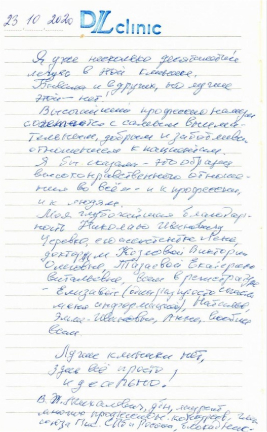 23 10 2020 DL clinic
Я уже несколько десятилетий
лечусь в этой клинике.
Бывала и в других, но лучше
этой - нет!
Высочайший профессионализм
сочетается с самым внима-
тельным, добрым и заботливым
отношением к пациентам.
Я бы сказала - это образец
высоконравственного отноше-
ния во всём - и к профессии,
и к людям.
Моя глубочайшая благодар-
ность Николаю Ивановичу
его ассистентке Лене,
докторам Козловой Виктории
Олеговне, Екатерине
Витальевне, всем в регистратуре
- Елизавете
Наталье,
Ивановне, Анне,
всем.
Лучше клиники нет,
здесь всё просто
идеально!
В.
профессионал